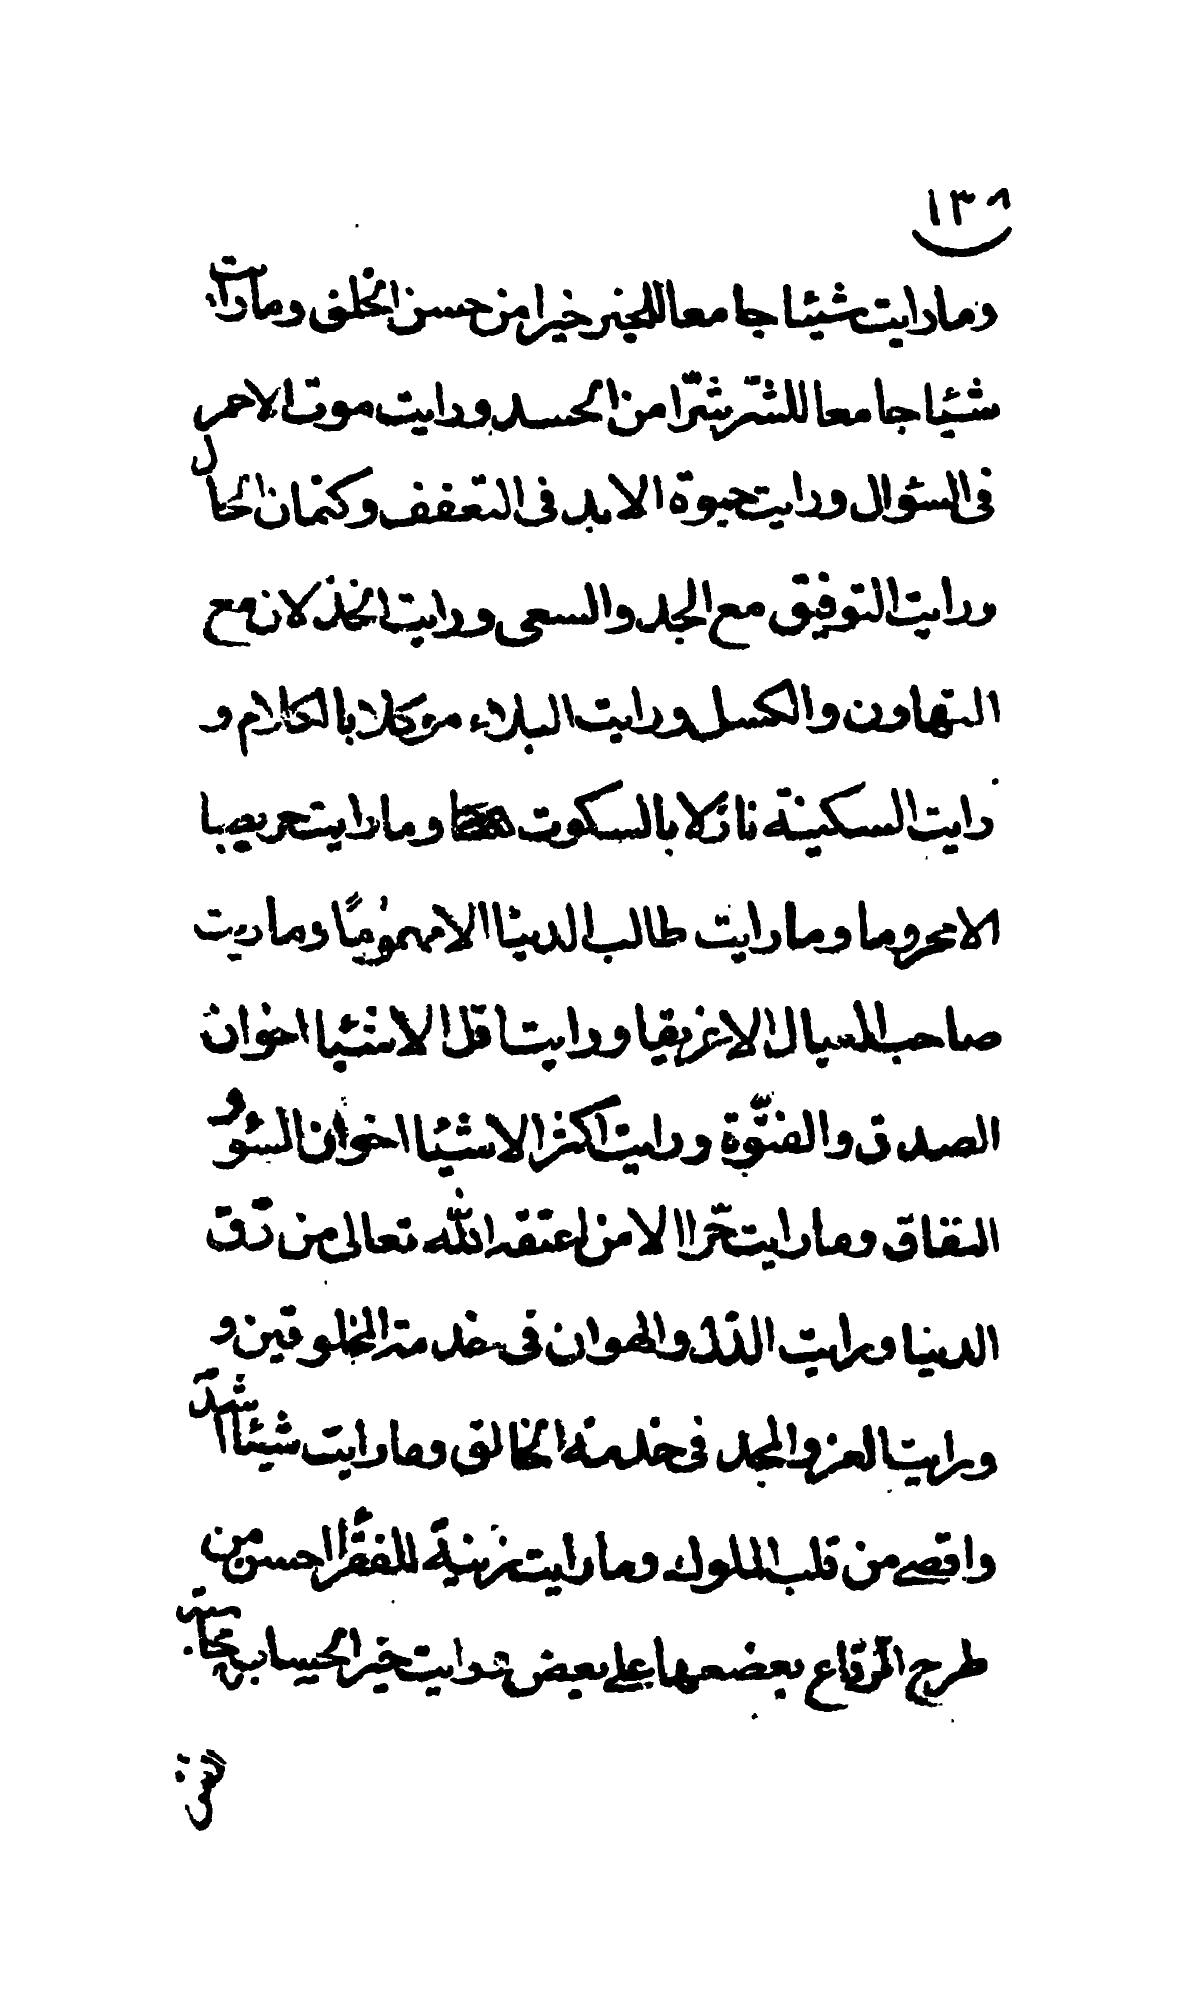 ١٣٨
ومارايت شيئا جامعا للخير خيرا من حسن الخلق ومارايت
شيئا جامعا للشرّ شرّا من الحسد ورايت موت الاحمر
فى السؤال ورايت حيوة الابد فى التعفف وكتمان الحال
ورايت التوفيق مع الجد والسعى ورايت الخذلان مع
التهاون والكسل ورايت البلاء موكلا بالكلام و
رايت السكينة نازلا بالسكوت ومارايت حريصا
الا محروما ومارايت طالب الدنيا الا مهمومًا وماريت
صاحب المال الا غريقا ورايت اقل الاشيا اخوان
الصدق والفتوّة ورايت اكثر الاشيئا اخوان السؤو
النفاق ومارايت حّرا الا من اعتقه الله تعالى من رّق
الدنيا ورايت الذّل والهوان فى خدمة المخلوقين و
ورايت العز والمجد فى خدمة الخالق ومارايت شيئا اشدّ
واقصى من قلب الملوك ومارايت زينة للفقرا احسن من
طرح الرقاع بعضها على بعض ورايت خير الحساب محاسبة
النفس